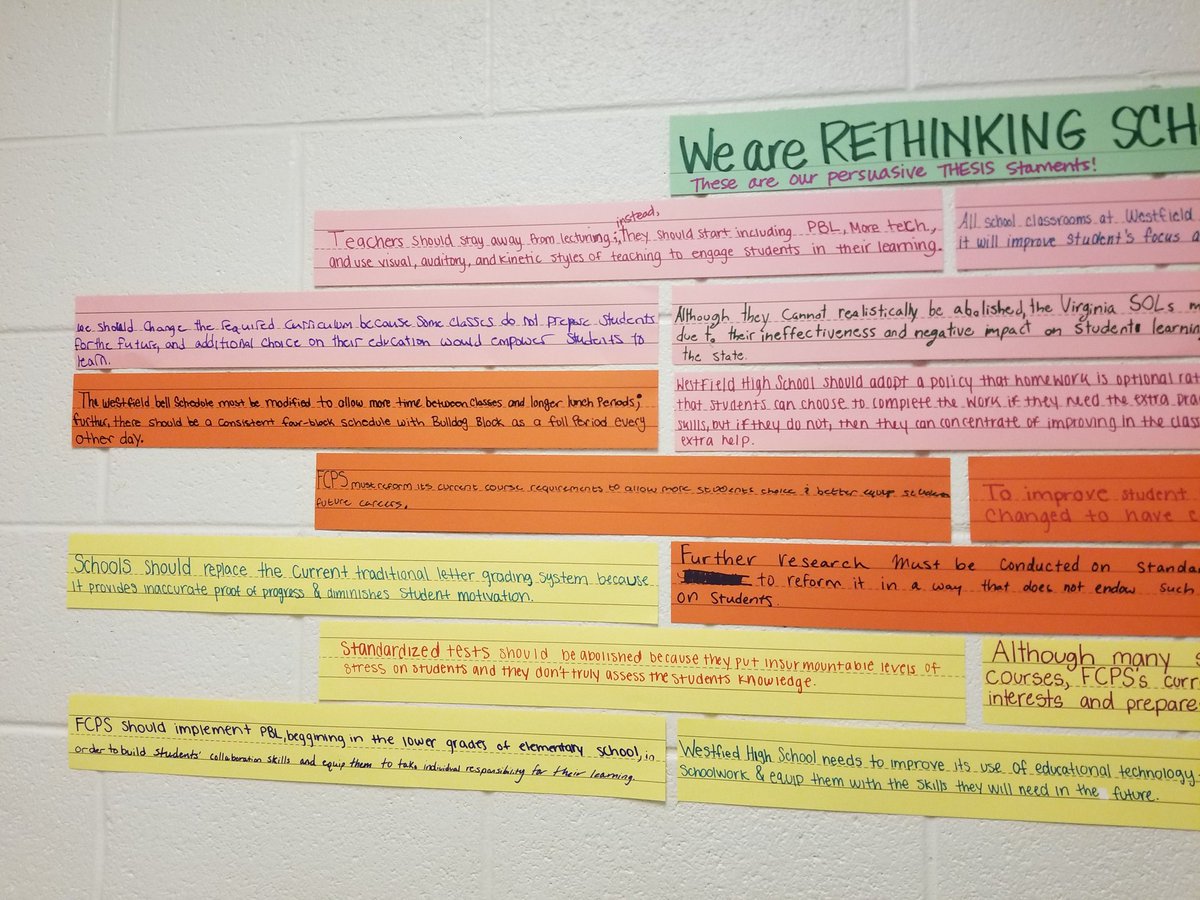 We are RETHINKING SCH
These are our persuasive THESIS Staments!
instead,
Teachers should stay away from lecturing; They should start including PBL, More tech,
and use visual, auditory, and kinetic styles of teaching to engage students in their learning.
All school classrooms at Westfield
it will improve student's focus a
we should change the required curriculum because some classes do not prepare students
for the future, and additional choice on their education would empower students to
learn.
Although they cannot realistically be abolished, the Virginia SOLs m
due to their ineffectiveness and negative impact on students learnin
the state.
The Westfield bell schedule must be modified to allow more time between classes and longer lunch periods;
further, there should be a consistent four-block schedule with Bulldog Block as a full period every
other day.
Westfield High School should adopt a policy that homework is optional rat
that students can choose to complete the work if they need the extra pra
skills, but if they do not, then they can concentrate of improving in the class
extra help.
FCPS must reform its current course requirements to allow more students choice & better equip studen
future careers.
To improve student
changed to have
Schools should replace the current traditional letter grading system because
it provides inaccurate proof of progress & diminishes student motivation.
Further research must be conducted on standar
to reform it in a way that does not endow such
on students.
Standardized tests should be abolished because they put insurmountable levels of
stress on students and they don't truly assess the students knowledge.
Although many s
courses, FCPS's curr
interests and prepare
FCPS should implement PBL, beggining in the lower grades of elementary school, in
order to build students' collaboration skills and equip them to take individual responsibility for their learning.
Westfied High School needs to improve its use of educational technology
schoolwork & equip them with the skills they will need in the future.